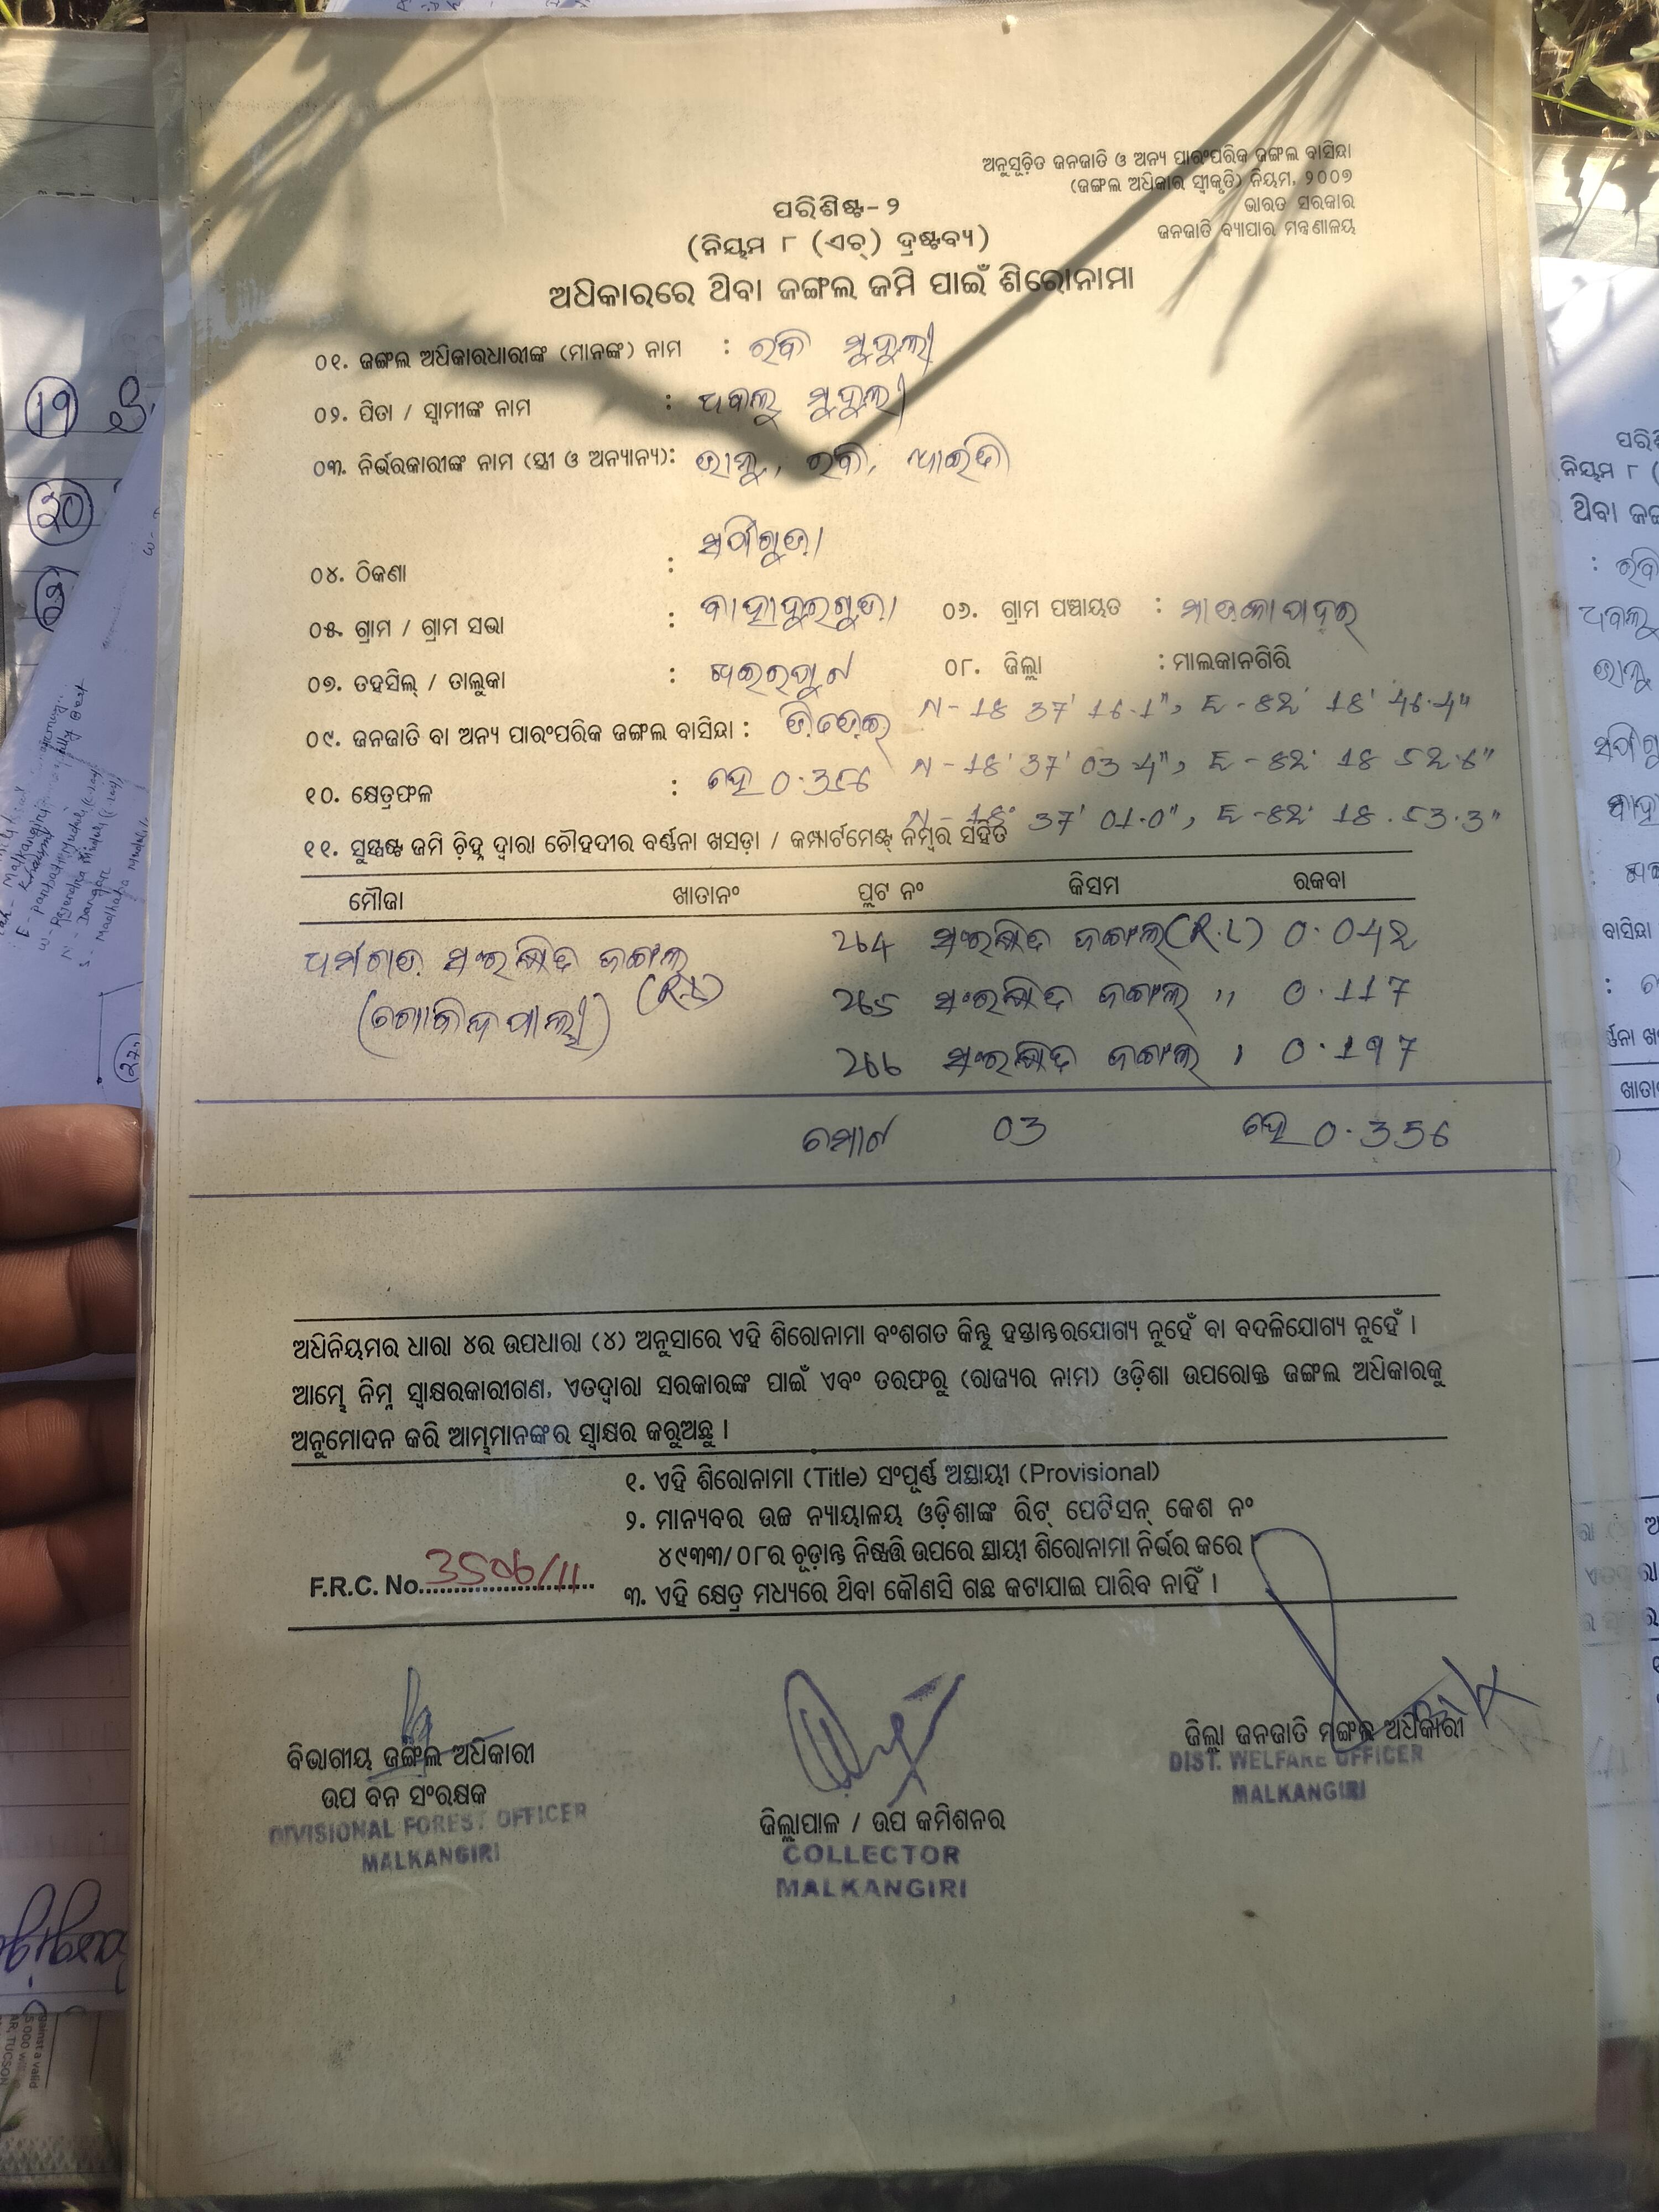 ଅନୁସୂଚିତ ଜନଜାତି ଓ ଅନ୍ୟ ପାରଂପରିକ ଜଙ୍ଗଲ ବାସିନ୍ଦା
(ଜଙ୍ଗଲ ଅଧିକାର ସ୍ୱୀକୃତି) ନିୟମ, ୨୦୦୭
ଭାରତ ସରକାର
ଜନଜାତି ବ୍ୟାପାର ମନ୍ତ୍ରଣାଳୟ
ପରିଶିଷ୍ଟ-୨
(ନିୟମ ୮ (ଏଚ୍) ଦ୍ରଷ୍ଟବ୍ୟ)
ଅଧିକାରରେ ଥିବା ଜଙ୍ଗଲ ଜମି ପାଇଁ ଶିରୋନାମା
୦୧. ଜଙ୍ଗଲ ଅଧିକାରଧାରୀଙ୍କ (ମାନଙ୍କ) ନାମ : ରବି ମୁଦୁଲୀ
୦୨. ପିତା / ସ୍ୱାମୀଙ୍କ ନାମ : ଧବଳୁ ମୁଦୁଲୀ
୦୩. ନିର୍ଭରକାରୀଙ୍କ ନାମ (ସ୍ତ୍ରୀ ଓ ଅନ୍ୟାନ୍ୟ): ରବି,
୦୪. ଠିକଣା :
୦୫. ଗ୍ରାମ / ଗ୍ରାମ ସଭା : ବାହାଦୁରଗୁଡା ୦୬. ଗ୍ରାମ ପଞ୍ଚାୟତ :
୦୭. ତହସିଲ୍ / ତାଲୁକା : ଖଇରପୁଟ ୦୮. ଜିଲ୍ଲା : ମାଲକାନଗିରି
N-18 37' 16.1", E-82' 18' 46.4"
୦୯. ଜନଜାତି ବା ଅନ୍ୟ ପାରଂପରିକ ଜଙ୍ଗଲ ବାସିନ୍ଦା :
N-18' 37' 03.4", E-82' 18 52.6"
୧୦. କ୍ଷେତ୍ରଫଳ : ହେ 0.356
N-18° 37' 01.0", E-82' 18.53.3"
୧୧. ସୁସ୍ପଷ୍ଟ ଜମି ଚିହ୍ନ ଦ୍ୱାରା ଚୌହଦୀର ବର୍ଣ୍ଣନା ଖସଡ଼ା / କମ୍ପାର୍ଟମେଣ୍ଟ୍ ନମ୍ବର ସହିତ
ମୌଜା ଖାତାନଂ ପ୍ଲଟ ନଂ କିସମ ରକବା
ଧର୍ମଗଡ ସଂରକ୍ଷିତ ଜଙ୍ଗଲ 264 ସଂରକ୍ଷିତ ଜଙ୍ଗଲ 0.042
(ଗୋବିନ୍ଦପାଲୀ) 265 ସଂରକ୍ଷିତ ଜଙ୍ଗଲ ,, 0.117
266 ସଂରକ୍ଷିତ ଜଙ୍ଗଲ , 0.197
ମୋଟ 03 ହେ 0.356
ଅଧିନିୟମର ଧାରା ୪ର ଉପଧାରା (୪) ଅନୁସାରେ ଏହି ଶିରୋନାମା ବଂଶଗତ କିନ୍ତୁ ହସ୍ତାନ୍ତରଯୋଗ୍ୟ ନୁହେଁ ବା ବଦଳିଯୋଗ୍ୟ ନୁହେଁ ।
ଆମ୍ଭେ ନିମ୍ନ ସ୍ୱାକ୍ଷରକାରୀଗଣ, ଏତଦ୍ୱାରା ସରକାରଙ୍କ ପାଇଁ ଏବଂ ତରଫରୁ (ରାଜ୍ୟର ନାମ) ଓଡ଼ିଶା ଉପରୋକ୍ତ ଜଙ୍ଗଲ ଅଧିକାରକୁ
ଅନୁମୋଦନ କରି ଆମ୍ଭମାନଙ୍କର ସ୍ୱାକ୍ଷର କରୁଅଛୁ ।
୧. ଏହି ଶିରୋନାମା (Title) ସଂପୂର୍ଣ୍ଣ ଅସ୍ଥାୟୀ (Provisional)
୨. ମାନ୍ୟବର ଉଚ୍ଚ ନ୍ୟାୟାଳୟ ଓଡ଼ିଶାଙ୍କ ରିଟ୍ ପେଟିସନ୍ କେଶ ନଂ
୪୯୩୩/୦୮ର ଚୂଡ଼ାନ୍ତ ନିଷ୍ପତ୍ତି ଉପରେ ସ୍ଥାୟୀ ଶିରୋନାମା ନିର୍ଭର କରେ ।
F.R.C. No. 3506/11
୩. ଏହି କ୍ଷେତ୍ର ମଧ୍ୟରେ ଥିବା କୌଣସି ଗଛ କଟାଯାଇ ପାରିବ ନାହିଁ ।
ବିଭାଗୀୟ ଜଙ୍ଗଲ ଅଧିକାରୀ
ଉପ ବନ ସଂରକ୍ଷକ
DIVISIONAL FOREST OFFICER
MALKANGIRI
ଜିଲ୍ଲାପାଳ / ଉପ କମିଶନର
COLLECTOR
MALKANGIRI
ଜିଲ୍ଲା ଜନଜାତି ମଙ୍ଗଳ ଅଧିକାରୀ
DIST. WELFARE OFFICER
MALKANGIRI